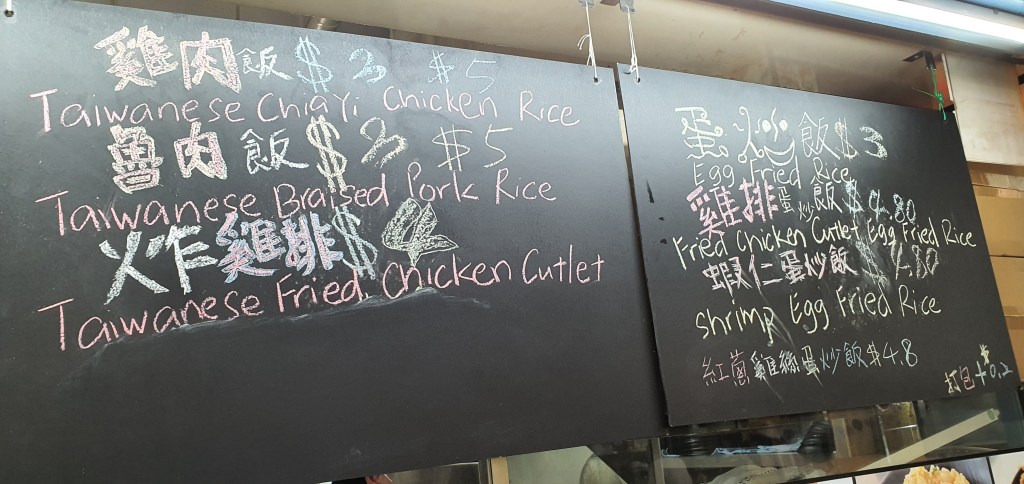 雞肉飯 $3 $5
Taiwanese Chiayi Chicken Rice
魯肉飯 $3 $5
Taiwanese Braised Pork Rice
炸雞排 $4
Taiwanese Fried Chicken Cutlet
蛋炒飯 $3
Egg Fried Rice
雞排蛋炒飯 $4.80
Fried Chicken Cutlet Egg Fried Rice
蝦仁蛋炒飯 $4.80
shrimp Egg Fried Rice
紅蔥雞絲蛋炒飯 $4.8
打包 + $0.2